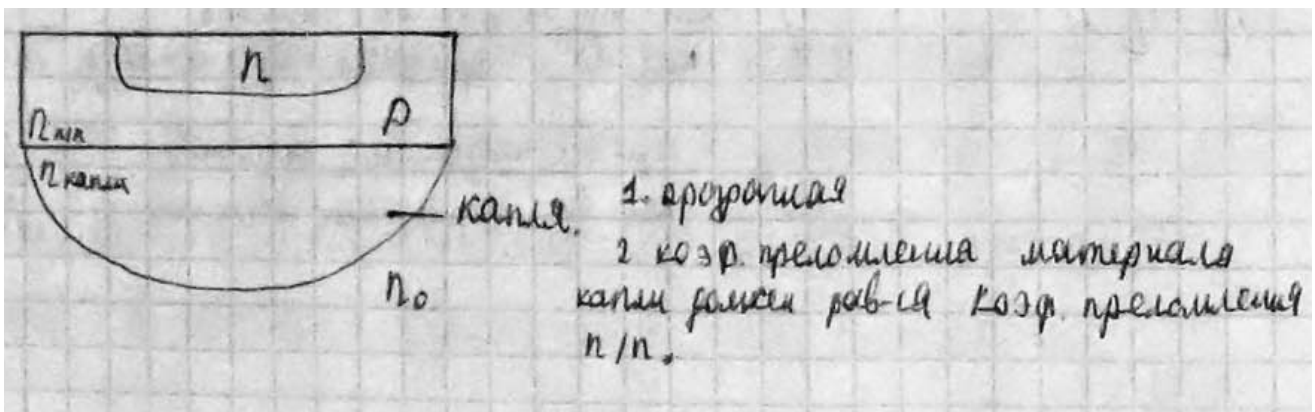 n
n п/п
p
n капли
капля.
1. прозрачная
2 коэф. преломления материала
n₀
капли должен рав-ся коэф. преломления
п/п.